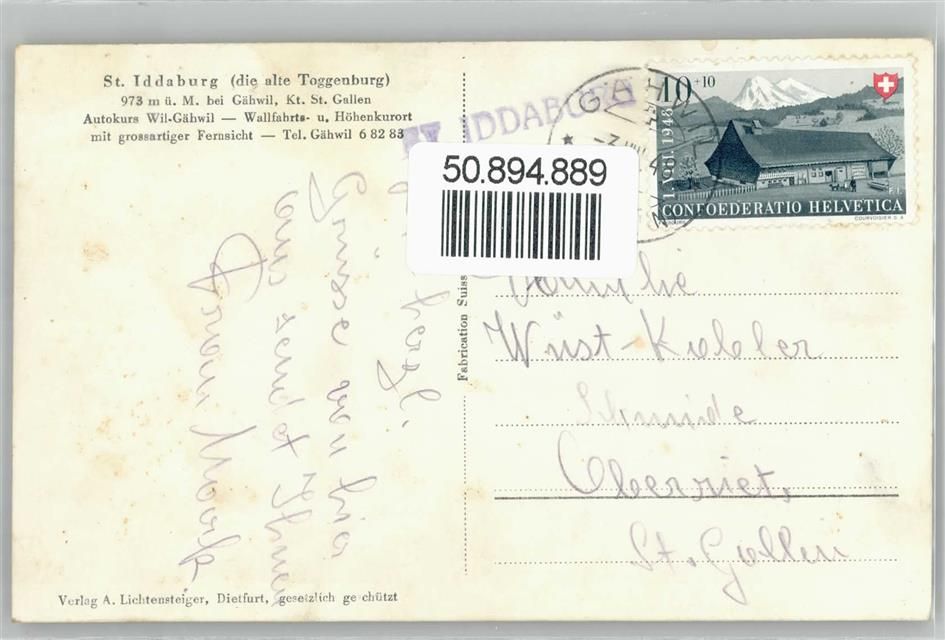 St. Iddaburg (die alte Toggenburg)
973 m ü. M. bei Gähwil, Kt. St. Gallen
Autokurs Wil-Gähwil — Wallfahrts- u. Höhenkurort
mit grossartiger Fernsicht — Tel. Gähwil 6 82 83
IDDABURG
GÄHWIL
10+10
1 AUGUST 1948
CONFOEDERATIO HELVETICA
COURVOISIER S.A.
50.894.889
Fabrication Suisse
Grüsse von hier
aus sendet Ihnen
Frau Mark
Familie
Wüst-Kobler
Schmide
Oberriet,
St. Gallen
Verlag A. Lichtensteiger, Dietfurt, gesetzlich geschützt